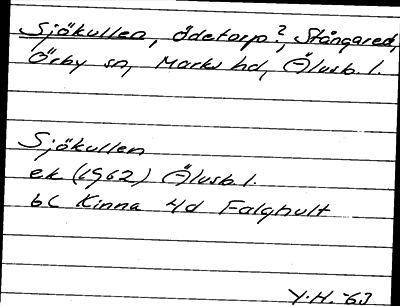 Sjökullen, Ödetorp?, Stångared,
Örby sn, Marks hd, Älvsb. l.
Sjökullen
ek (1962) Älvsb. l.
6C Kinna 4d Falghult
Y.H. -63